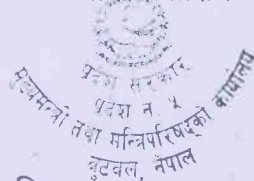 प्रदेश सरकार
प्रदेश नं ५
मुख्यमन्त्री तथा मन्त्रिपरिषद्को कार्यालय
बुटवल, नेपाल